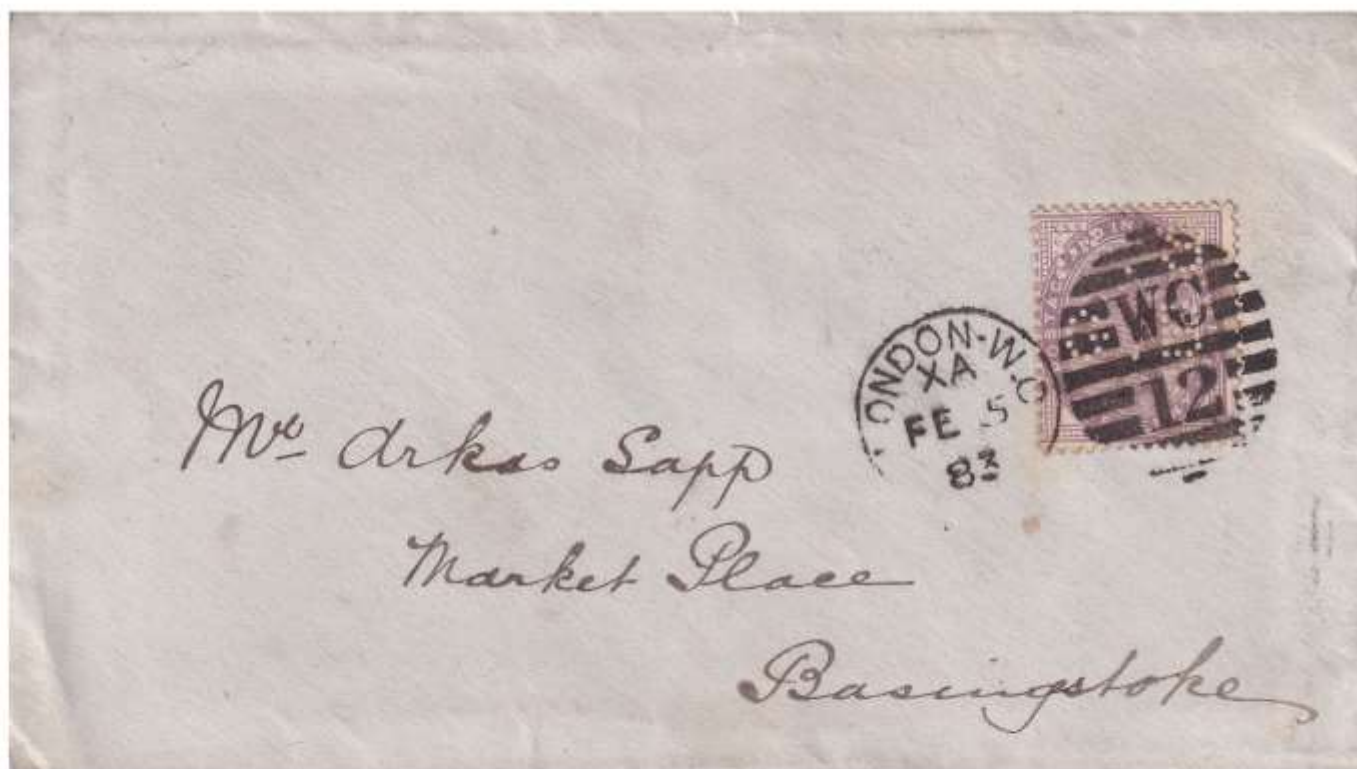 LONDON-W.C
XA
FE 5
83
WC
12
Mr Arkas Sapp
Market Place
Basingstoke